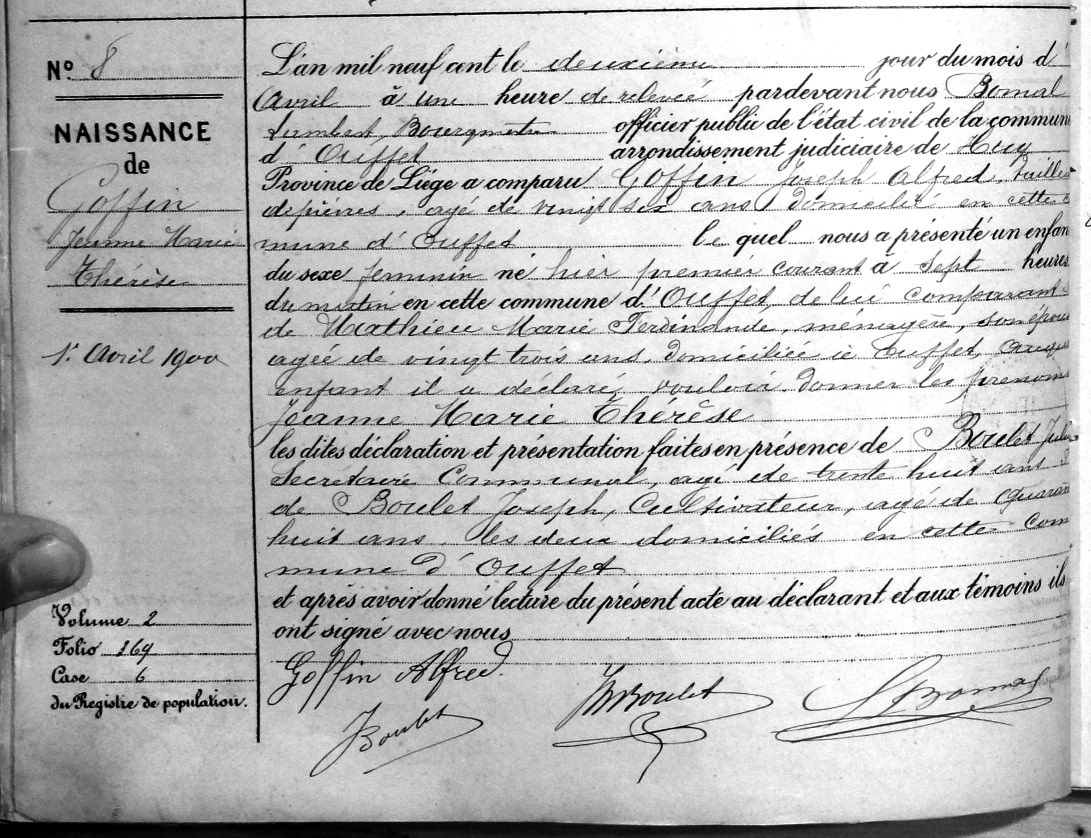 Nº 8
NAISSANCE
de
Goffin
Jeanne Marie
Thérèse
1r Avril 1900
Volume 2
Folio 169
Case 6
du Registre de population.
L'an mil neuf cent le deuxième jour du mois d'
Avril à une heure de relevée pardevant nous Bomal
Lambert, Bourgmestre officier public de l'état civil de la commun
d' Ouffet arrondissement judiciaire de Huy
Province de Liége a comparu Goffin Joseph Alfred, tailleur
de pierres, agé de vingt six ans domicilié en cette
mune d' Ouffet le quel nous a présenté un enfan
du sexe féminin né hier premier courant à sept heures
du matin en cette commune d' Ouffet, de lui comparant
de Mathieu Marie Ferdinande, ménagère, son épouse
agée de vingt trois ans, domiciliée à Ouffet, auquel
enfant il a déclaré vouloir donner les prénoms
Jeanne Marie Thérèse
les dites déclaration et présentation faites en présence de Boulet Jules
Secrétaire Communal, agé de trente huit ans
de Boulet Joseph, Cultivateur, agé de quaran
huit ans, les deux domiciliés en cette com
mune d' Ouffet
et après avoir donné lecture du présent acte au déclarant et aux témoins ils
ont signé avec nous
Goffin Alfred.
J Boulet
Boulet
L Bomal